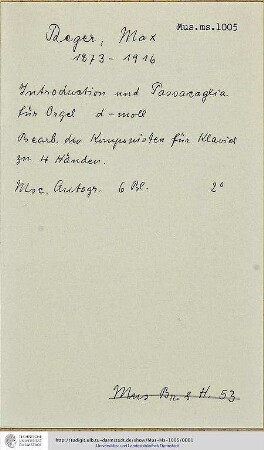 Mus.ms.1005
Reger, Max
1873-1916
Introduction und Passacaglia
für Orgel d-moll
Bearb. des Komponisten für Klavier
zu 4 Händen.
Msc. Autogr. 6 Bl. 2°
Mus Br. & H. 53
TECHNISCHE
UNIVERSITÄT
DARMSTADT
http://tudigit.ulb.tu-darmstadt.de/show/Mus-Ms-1005/0001
Universitäts- und Landesbibliothek Darmstadt